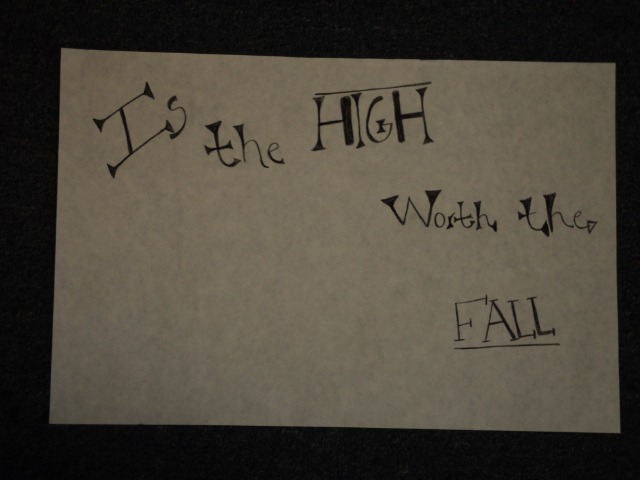 Is the HIGH
Worth the
FALL